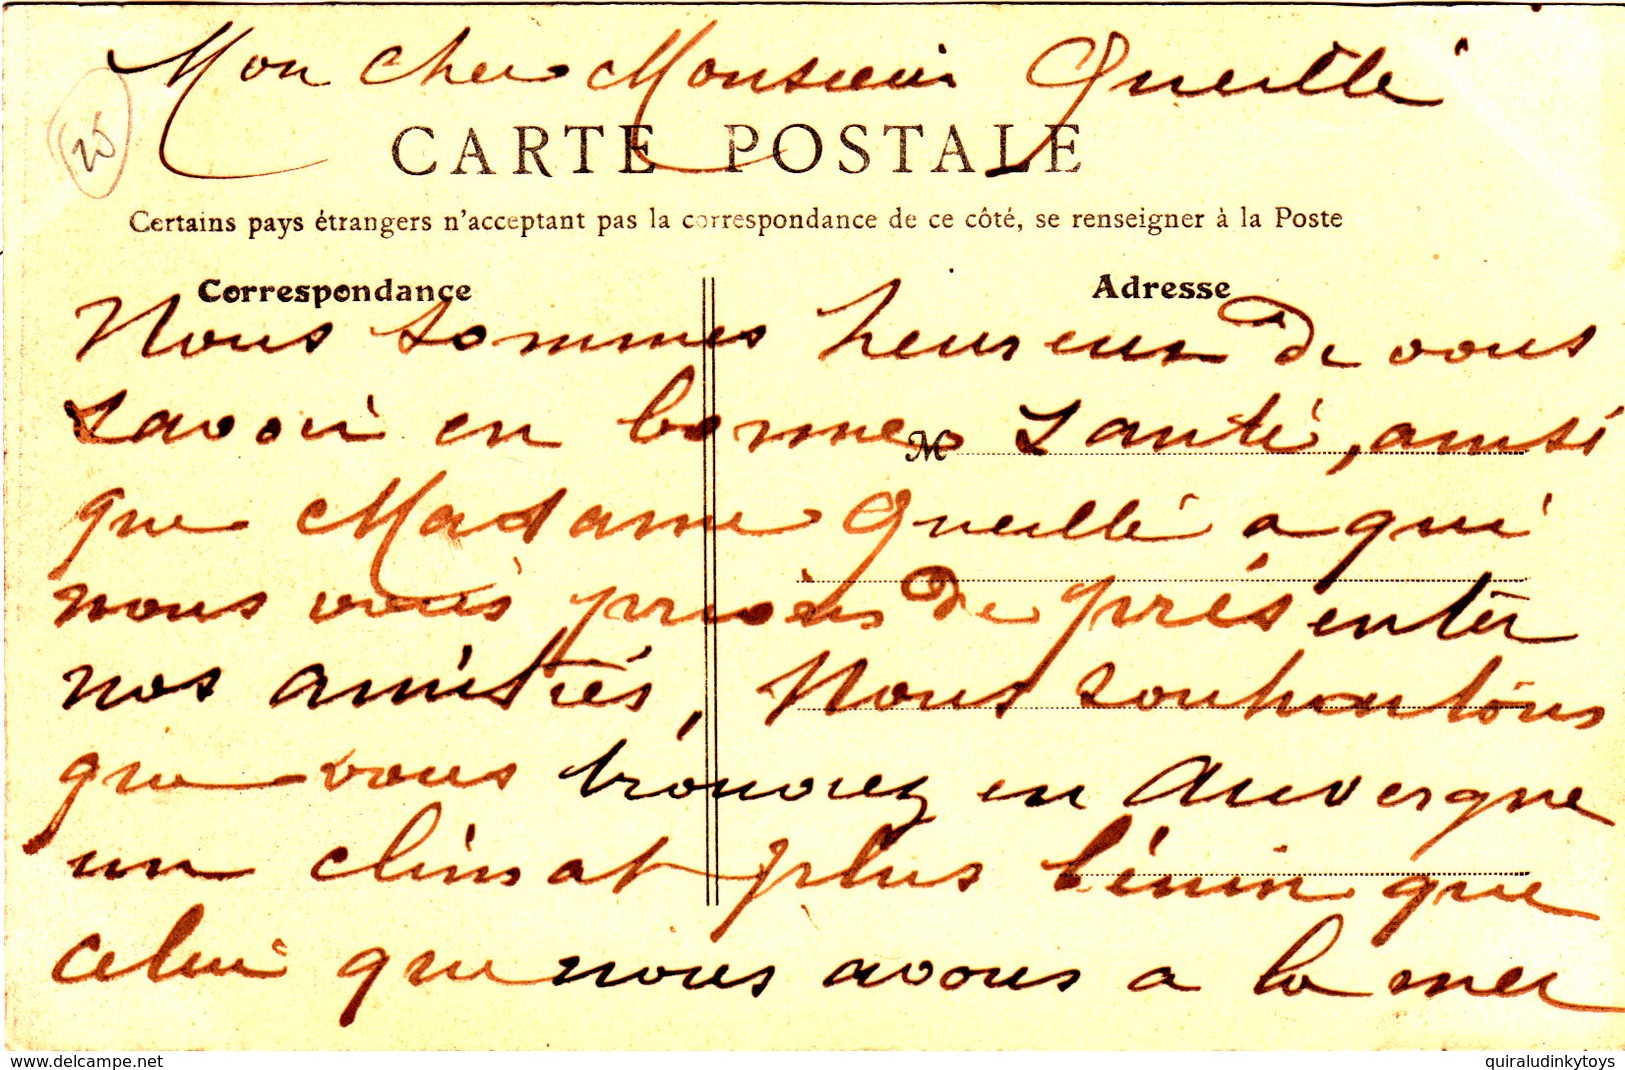 Mon cher Monsieur Queille
25
CARTE POSTALE
Certains pays étrangers n'acceptant pas la correspondance de ce côté, se renseigner à la Poste
Correspondance
Adresse
Nous sommes heureux de vous
savoir en bonne santé, ainsi
M
que Madame Queille a qui
nous vous prions de présenter
nos amitiés, Nous souhaitons
que vous trouviez en Auvergne
un climat plus bénin que
celui que nous avons a la mer
www.delcampe.net
quiraludinkytoys